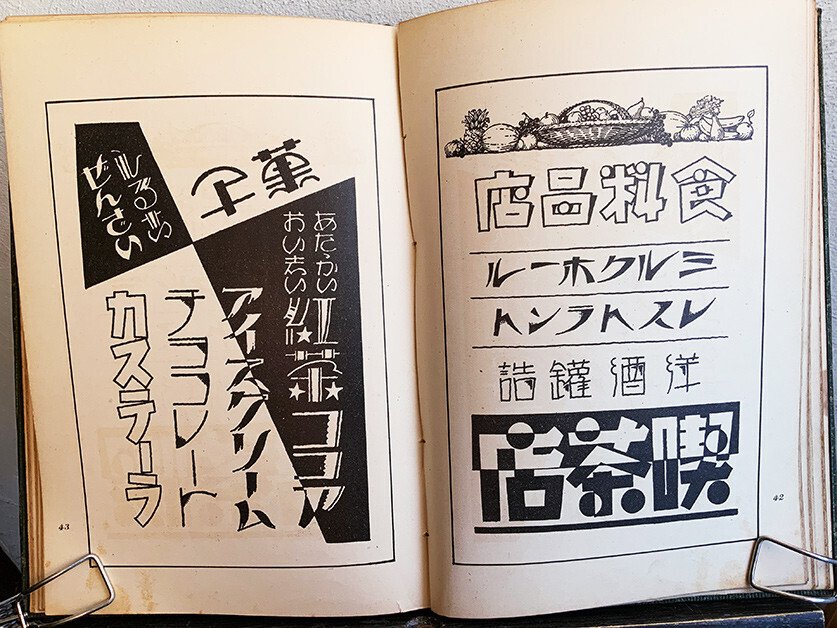 食料品店
ミルクホール
レストラント
洋酒罐詰
喫茶店
42
菓子
あたゝかい
おいしい
紅茶ココア
アイスクリーム
チヨコレート
カステーラ
しるこ
ぜんざい
43